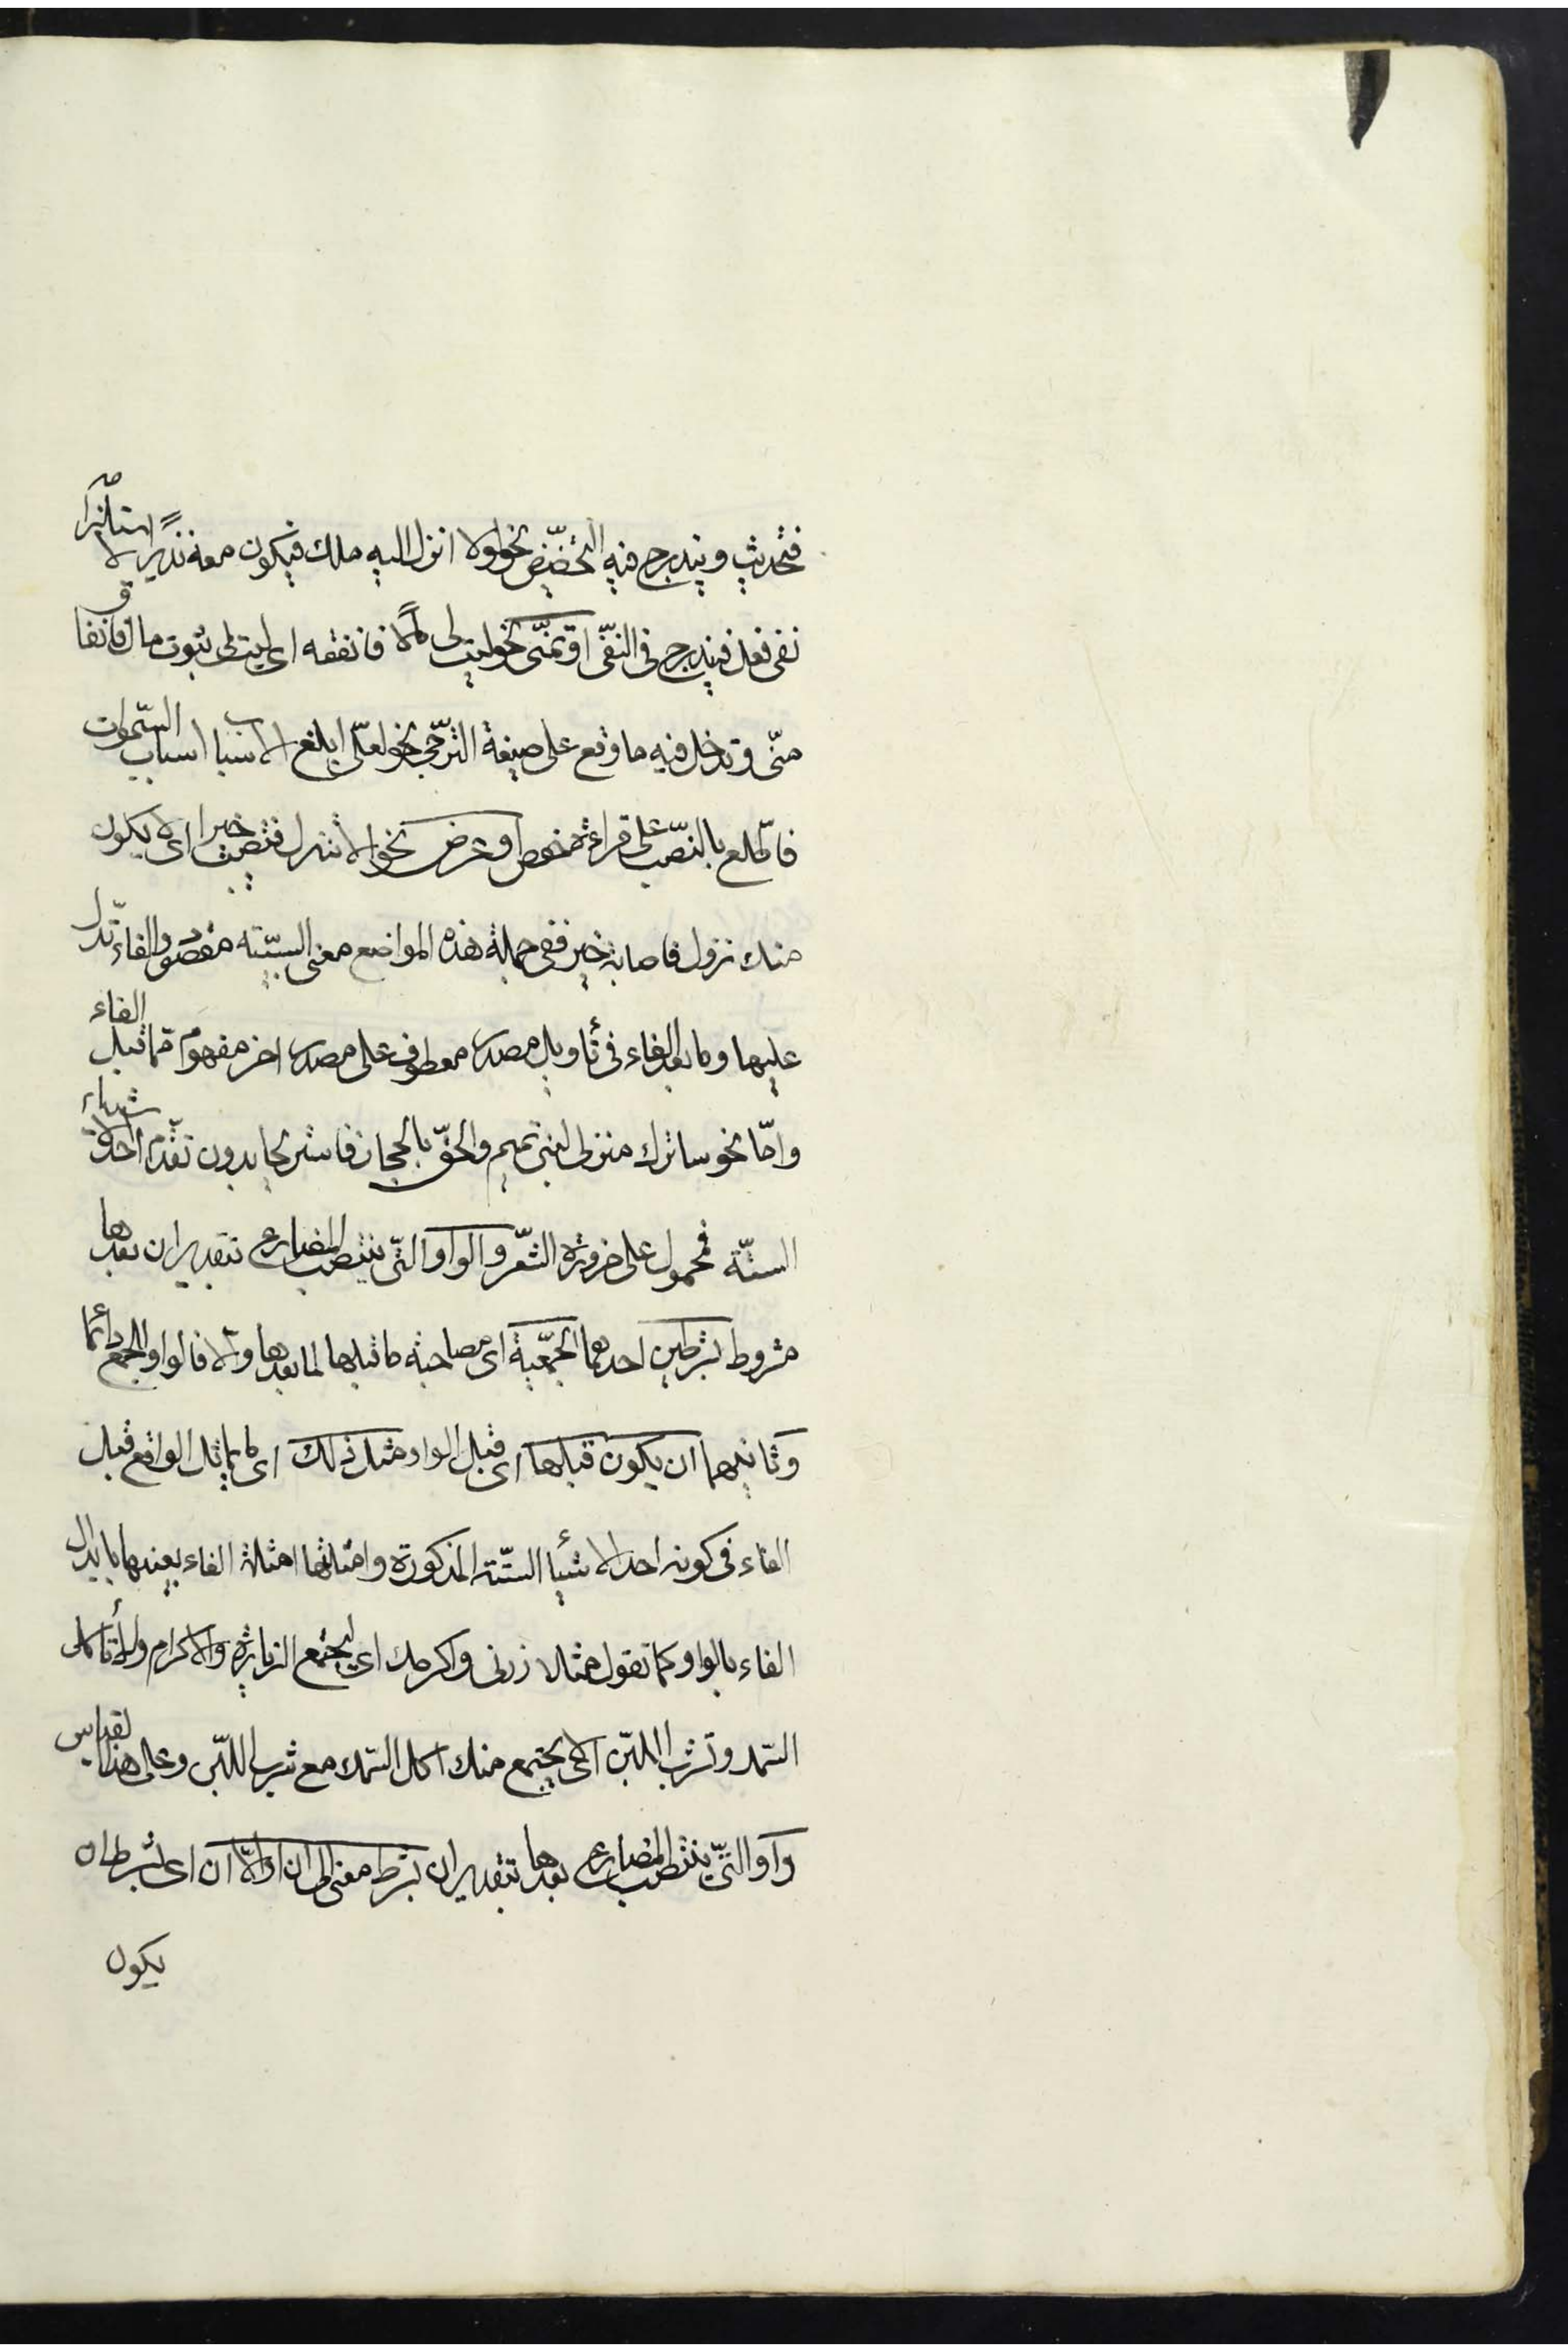 فتحدثنى ويندرج فيه التحضيض نحو لولا انزل اليه ملك فيكون معه نذيرا لاستلزامه
نفى فعل فيندرج فى النفى او تمنى نحو ليت لى مالا فانفقه اى ليت لى ثبوت مال فانفاقا
منى وتدخل فيه ما وقع على صيغة الترجى نحو لعلى ابلغ الاسباب اسباب السموات
فاطلع بالنصب على قراءة حفص او عرض نحو الا تنزل فتصيب خيرا اى الا يكون
منك نزول فاصابة خير ففى جملة هذه المواضع معنى السببية مقصود والفاء تدل
عليها وما بعد الفاء فى تأويل مصدر معطوف على مصدر اخر مفهوم مما قبل الفاء
واما نحو ساترك منزلى لبنى تميم والحق بالحجاز فاستريحا بدون تقدم احد الاشياء
الستة فمحمول على ضرورة الشعر والواو التى ينتصب المضارع بتقدير ان بعدها
مشروط بشرطين احدهما الجمعية اى مصاحبة ما قبلها لما بعدها والا فالواو للجمع دائما
وثانيهما ان يكون قبلها اى قبل الواو مثل ذلك اى ما يماثل الواقع قبل
الفاء فى كونه احد الاشيأ الستة المذكورة وامثلتها امثلة الفاء بعينها بابدال
الفاء بالواو كما تقول مثلا زرنى واكرمك اى ليجتمع الزيارة والاكرام ولا تأكل
السمك وتشرب اللبن اى لا يجتمع منك اكل السمك مع شرب اللبن وعلى هذا القياس
واو التى ينتصب المضارع بعدها بتقدير ان بشرط معنى الى ان او الا ان اى بشرط ان
يكون